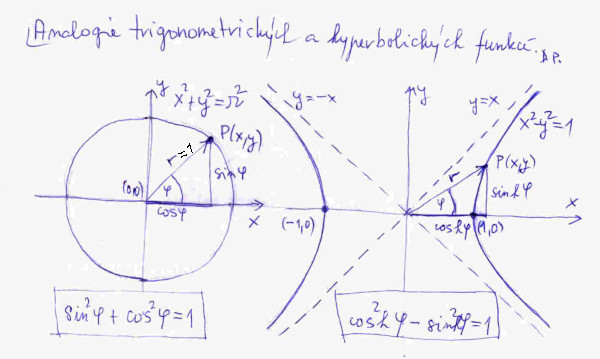 Analogie trigonometrických a hyperbolických funkcí.
D.P.
y
x²+y²=r²
P(x,y)
r=1
sinφ
(0,0)
φ
cosφ
x
sin²φ + cos²φ = 1
y=-x
y
y=x
x²-y²=1
P(x,y)
r
sinhφ
φ
x
(-1,0)
coshφ
(1,0)
cosh²φ - sinh²φ = 1